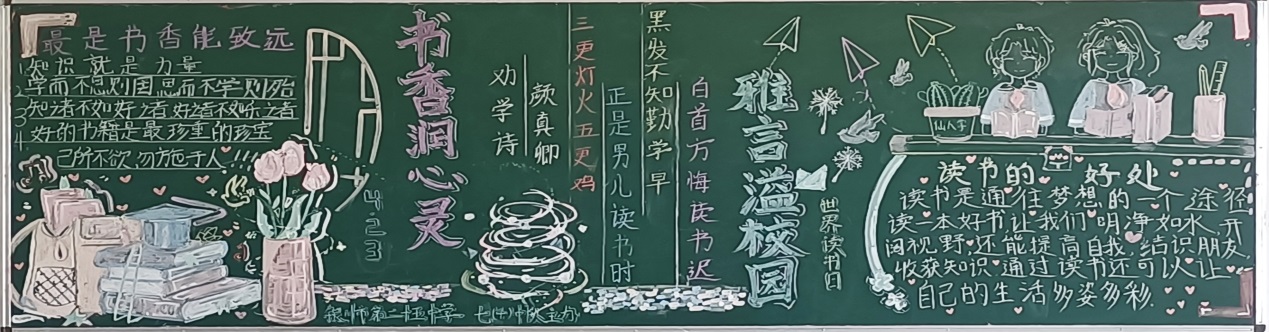 最是书香能致远
1.知识就是力量
2.学而不思则罔思而不学则殆
3.知之者不如好之者好之者不如乐之者
4.好的书籍是最珍重的珍宝
己所不欲,勿施于人!
书香润心灵
4.23
劝学诗
颜真卿
三更灯火五更鸡
正是男儿读书时
黑发不知勤学早
白首方悔读书迟
雅言溢校园
世界读书日
仙人掌
读书的好处
读书是通往梦想的一个途径
读一本好书,让我们明净如水,开
阔视野,还能提高自我,结识朋友,
收获知识。通过读书还可以让
自己的生活多姿多彩.